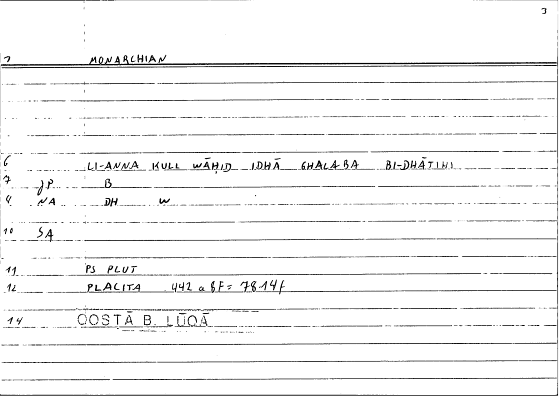 3
2 MONARCHIAN
6 LI-ANNA KULL WĀḤID IDHĀ GHALABA BI-DHĀTIHI
7 JP B
NA DH W
10 SA
11 PS PLUT
12 PLACITA 442 a 8F = 7814f
14 QOSTĀ B. LŪQĀ